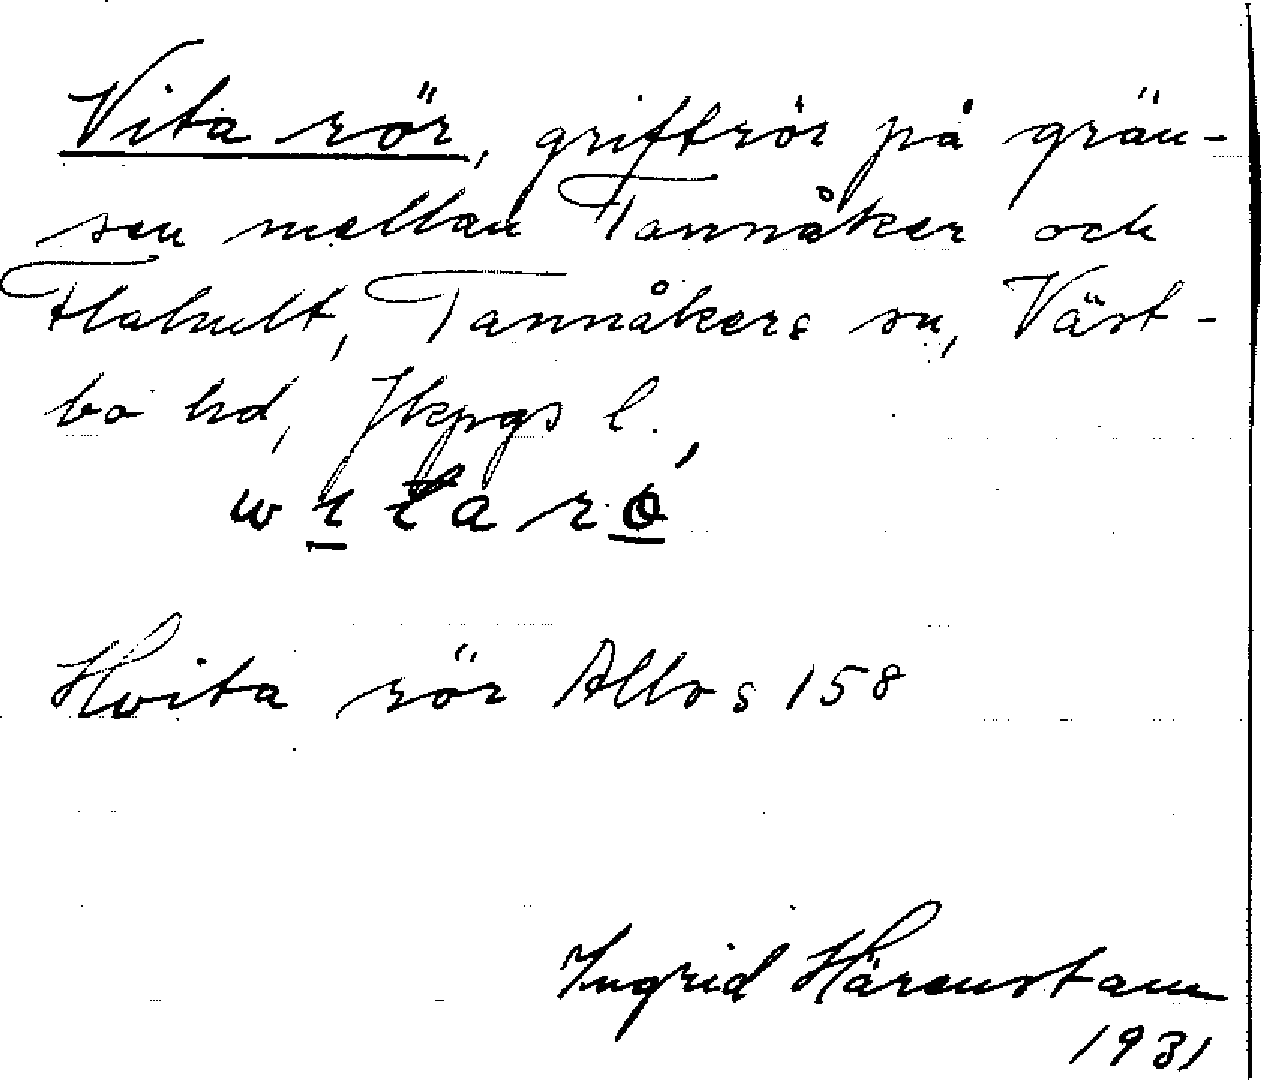 Vita rör, griftrör på grän-
sen mellan Tannåker och
Flahult, Tannåkers sn, Väst-
bo hd, Jkpgs l.
Hvita rör Allvs 158
Ingrid Härenstam
1931